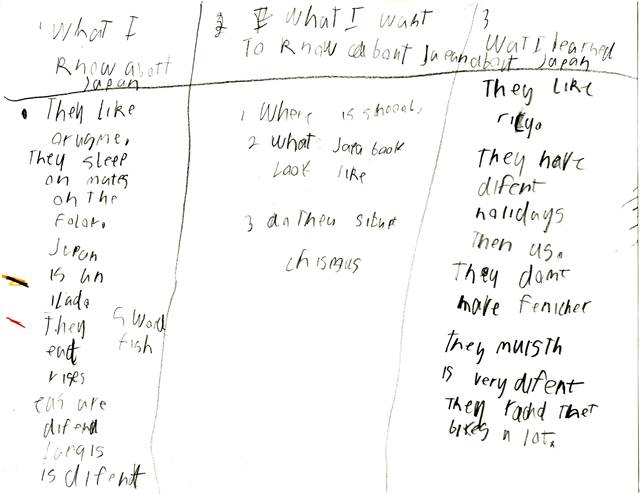 1 What I
know abott
Japan
They like
orugme,
They sleep
on mates
on the
folor.
Japan
is an
ilado
They sword
eat fish
rises
eas are
difend
langis
is difent
2 What I want
To know about Japan
1 Where is shcool,
2 what Japa book
look like
3 do They
chismus
3
Wat I learned
about Japan
They like
They have
difent
holidays
Then us.
They domt
make fenicher
they muisth
is very difent
They radd Thet
bikes a lot.